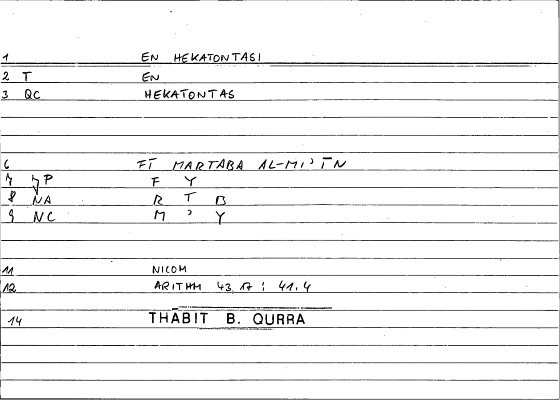 1 EN HEKATONTASI
2 T EN
3 QC HEKATONTAS
6 FĪ MARTABA AL-MI'ĪN
7 7P F Y
8 NA R T B
9 NC M ' Y
11 NICOM
12 ARITHM 43.17 : 41.4
14 THĀBIT B. QURRA